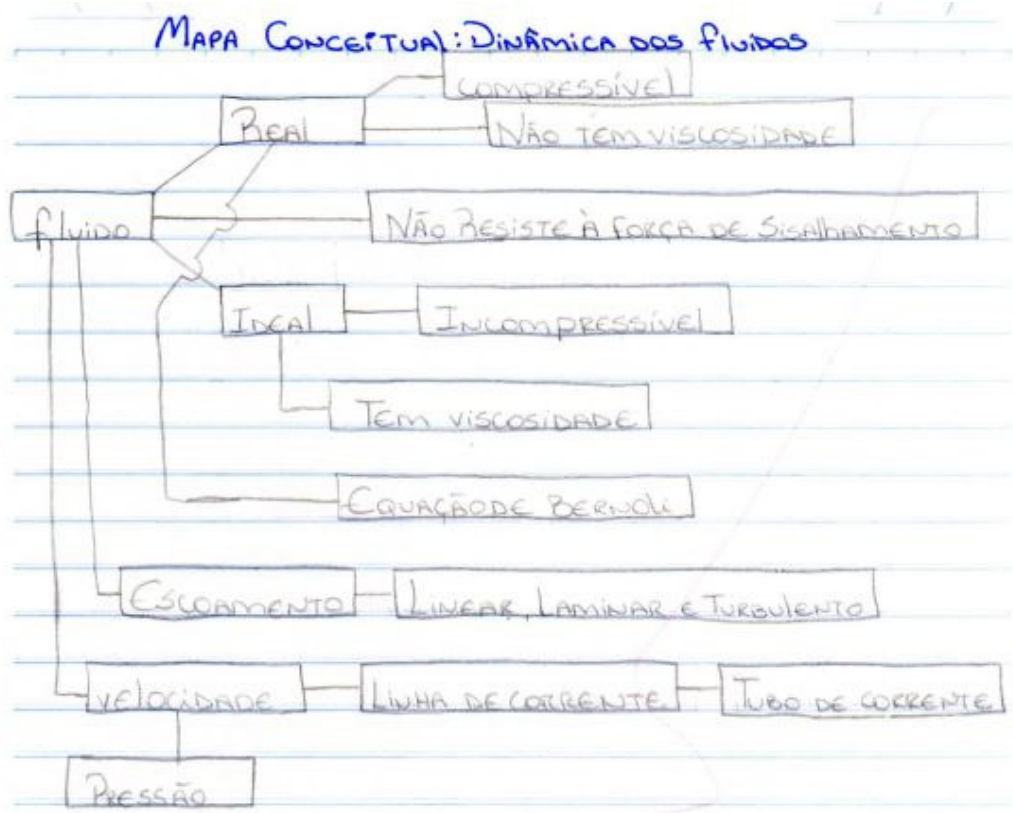 MAPA CONCEITUAL: DINÂMICA DOS FLUIDOS
COMPRESSÍVEL
REAL
NÃO TEM VISCOSIDADE
FLUIDO
NÃO RESISTE À FORÇA DE SISALHAMENTO
IDEAL
INCOMPRESSÍVEL
TEM VISCOSIDADE
EQUAÇÃO DE BERNOLI
ESCOAMENTO
LINEAR, LAMINAR E TURBULENTO
VELOCIDADE
LINHA DE CORRENTE
TUBO DE CORRENTE
PRESSÃO